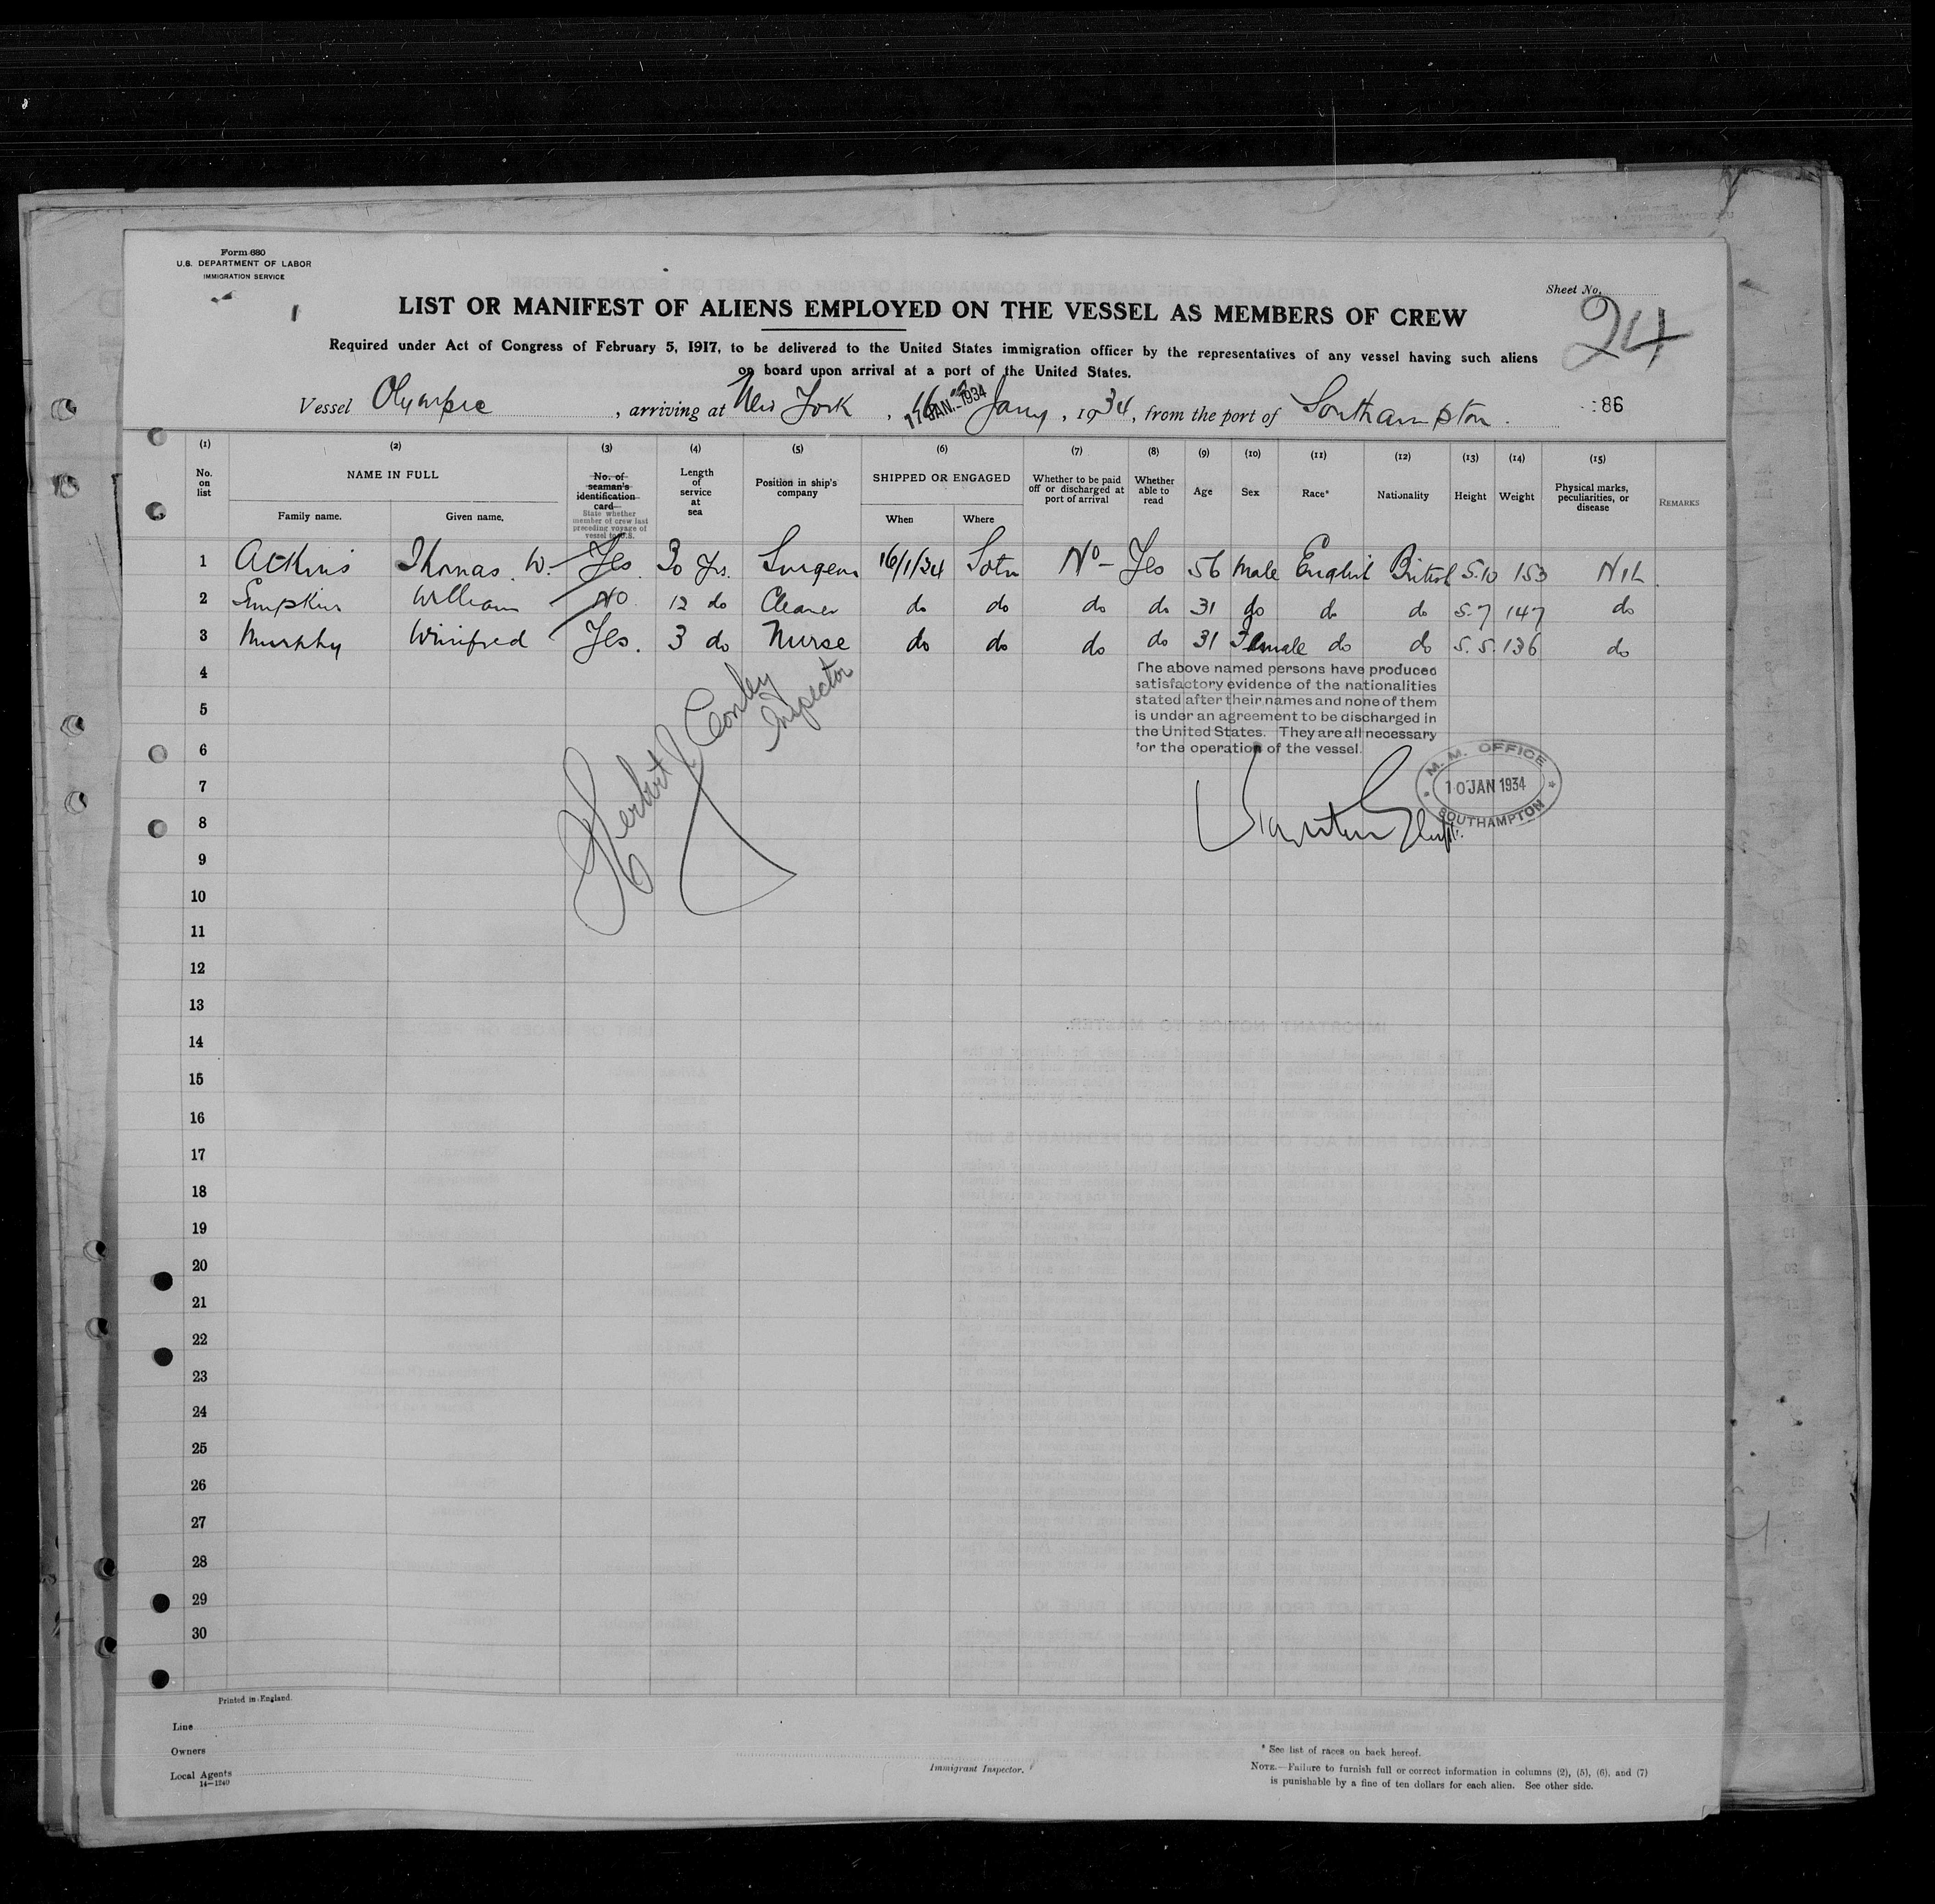 Form 680
U.S. DEPARTMENT OF LABOR
IMMIGRATION SERVICE
Sheet No. 24
LIST OR MANIFEST OF ALIENS EMPLOYED ON THE VESSEL AS MEMBERS OF CREW
Required under Act of Congress of February 5, 1917, to be delivered to the United States immigration officer by the representatives of any vessel having such aliens
on board upon arrival at a port of the United States.
Vessel Olympic, arriving at New York, 16 17 JAN. 1934 Jany, 1934, from the port of Southampton. 86
(1) (2) (3) (4) (5) (6) (7) (8) (9) (10) (11) (12) (13) (14) (15)
No. on list
NAME IN FULL
Family name. Given name.
No. of seaman's identification card
State whether member of crew last preceding voyage of vessel to U.S.
Length of service at sea
Position in ship's company
SHIPPED OR ENGAGED
When Where
Whether to be paid off or discharged at port of arrival
Whether able to read
Age
Sex
Race*
Nationality
Height
Weight
Physical marks, peculiarities, or disease
REMARKS
1 Atkins Thomas. W. Yes 30 Yrs. Surgeon 16/1/34 Soton No - Yes 56 Male English British 5.10 153 NIL
2 Simpkin William No 12 do Cleaner do do do do 31 do do do 5.7 147 do
3 Murphy Winifred Yes. 3 do Nurse do do do do 31 Female do do 5.5. 136 do
4
5
6
7
8
9
10
11
12
13
14
15
16
17
18
19
20
21
22
23
24
25
26
27
28
29
30
Herbert J Conley
Inspector
The above named persons have produced
satisfactory evidence of the nationalities
stated after their names and none of them
is under an agreement to be discharged in
the United States. They are all necessary
for the operation of the vessel.
M. M. OFFICE
10 JAN 1934
SOUTHAMPTON
Printed in England.
Line
Owners
Local Agents
14-1240
Immigrant Inspector.
* See list of races on back hereof.
NOTE.—Failure to furnish full or correct information in columns (2), (5), (6), and (7)
is punishable by a fine of ten dollars for each alien. See other side.